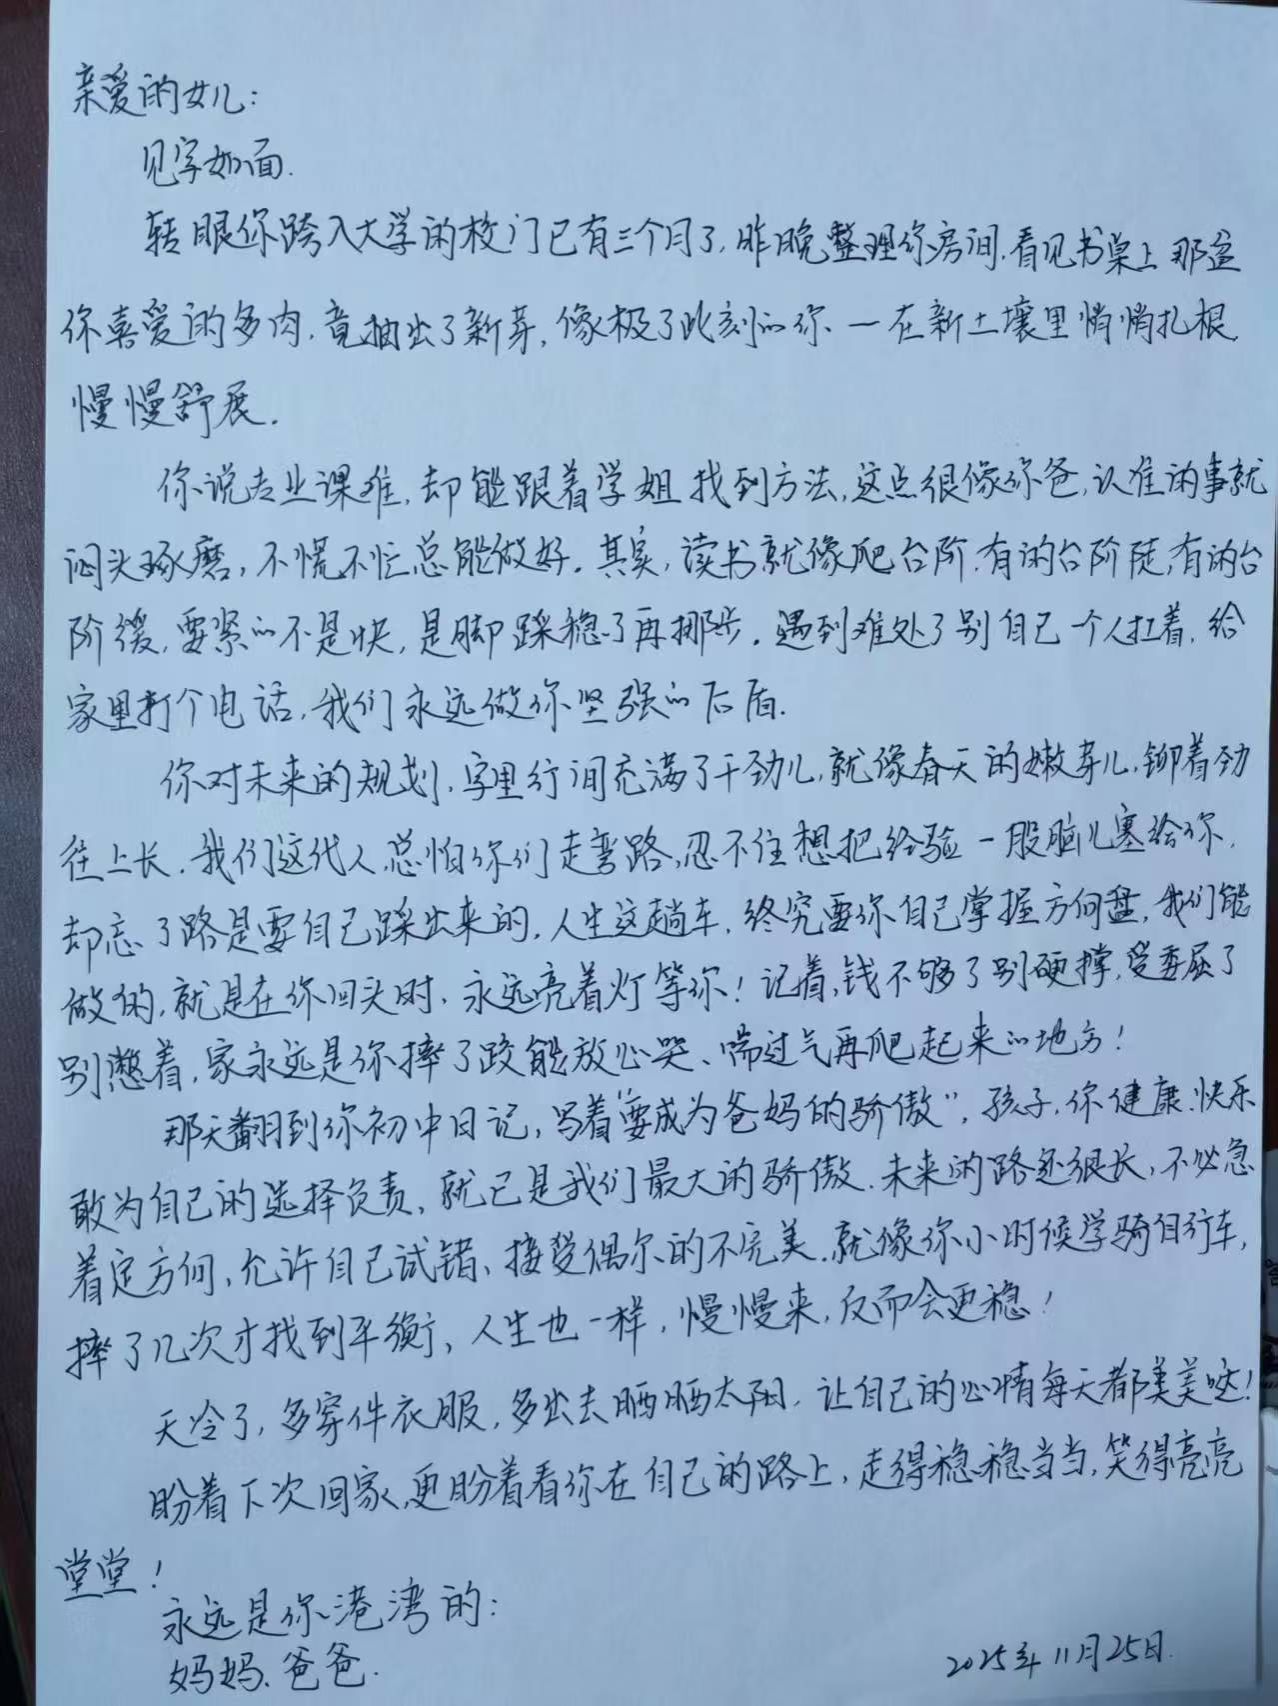 亲爱的女儿:
见字如面.
转眼你跨入大学的校门已有三个月了,昨晚整理你房间,看见书桌上那盆
你喜爱的多肉,竟抽出了新芽,像极了此刻的你—在新土壤里悄悄扎根,
慢慢舒展.
你说专业课难,却能跟着学姐找到方法,这点很像你爸,认准的事就
闷头琢磨,不慌不忙总能做好.其实,读书就像爬台阶,有的台阶陡,有的台
阶缓,要紧的不是快,是脚踩稳了再挪步.遇到难处了别自己一个人扛着,给
家里打个电话,我们永远做你坚强的后盾.
你对未来的规划,字里行间充满了干劲儿,就像春天的嫩芽儿,铆着劲
往上长.我们这代人,总怕你们走弯路,忍不住想把经验一股脑儿塞给你,
却忘了路是要自己踩出来的,人生这趟车,终究要你自己掌握方向盘,我们能
做的,就是在你回头时,永远亮着灯等你!记着,钱不够了别硬撑,受委屈了
别憋着,家永远是你摔了跤能放心哭、喘过气再爬起来的地方!
那天翻到你初中日记,写着“要成为爸妈的骄傲”,孩子,你健康、快乐
敢为自己的选择负责,就已是我们最大的骄傲.未来的路还很长,不必急
着定方向,允许自己试错、接受偶尔的不完美.就像你小时候学骑自行车,
摔了几次才找到平衡,人生也一样,慢慢来,反而会更稳!
天冷了,多穿件衣服,多出去晒晒太阳,让自己的心情每天都美美哒!
盼着下次回家,更盼着看你在自己的路上,走得稳稳当当,笑得亮亮
堂堂!
永远是你港湾的:
妈妈、爸爸.
2025年11月25日.